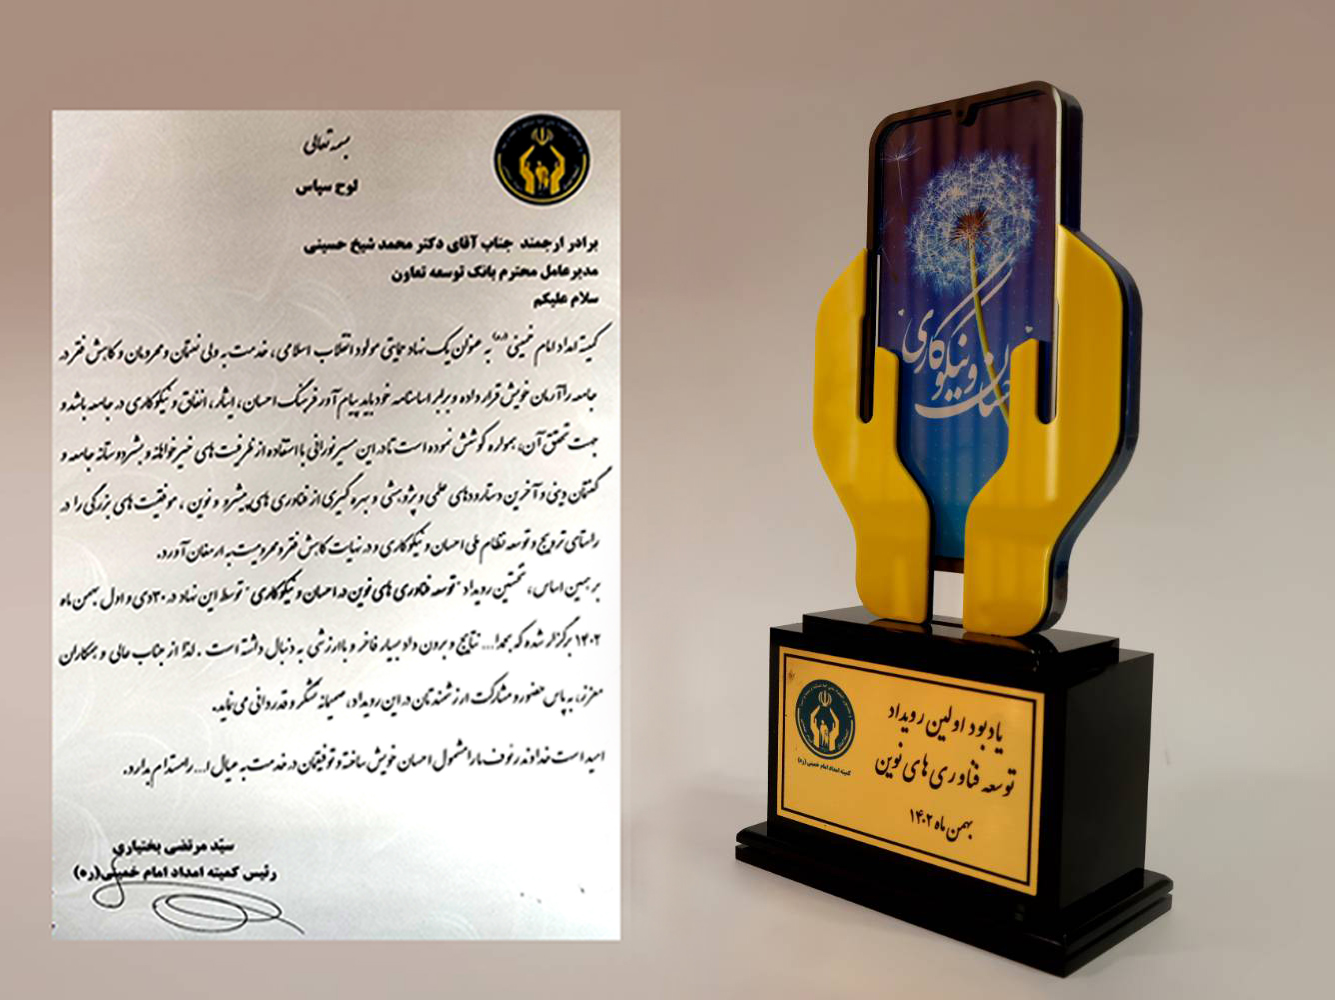 بسمه تعالی
لوح سپاس
برادر ارجمند جناب آقای دکتر محمد شیخ حسینی
مدیرعامل محترم بانک توسعه تعاون
سلام علیکم
کمیته امداد امام خمینی (ره) به عنوان یک نهاد حمایتی مولود انقلاب اسلامی، خدمت به ولی نعمتان و محرومان و کاهش فقر در
جامعه را آرمان خویش قرار داده و برابر اساسنامه خود باید پیام آور فرهنگ احسان، ایثار، انفاق و نیکوکاری در جامعه باشد و
جهت تحقق آن، همواره کوشش نموده است تا در این مسیر نورانی با استفاده از ظرفیت های خیرخواهانه و بشردوستانه جامعه و
گفتمان دینی و آخرین دستاوردهای علمی و پژوهشی و بهره گیری از فناوری های پیشرو و نوین، موفقیت های بزرگی را در
راستای ترویج و توسعه نظام ملی احسان و نیکوکاری و در نهایت کاهش فقر و محرومیت به ارمغان آورد.
بر همین اساس، نخستین رویداد "توسعه فناوری های نوین در احسان و نیکوکاری" توسط این نهاد در ۳۰ دی و اول بهمن ماه
۱۴۰۲ برگزار شده که بحمدا... نتایج و برون داد بسیار فاخر و باارزشی به دنبال داشته است. لذا از جناب عالی و همکاران
معزز، به پاس حضور و مشارکت ارزشمندتان در این رویداد، صمیمانه تشکر و قدردانی می نماید.
امید است خداوند رئوف ما را مشمول احسان خویش ساخته و توفیقتان در خدمت به عیال ا... را مستدام بدارد.
سیّد مرتضی بختیاری
رئیس کمیته امداد امام خمینی(ره)
احسان و نیکوکاری
یادبود اولین رویداد
توسعه فناوری های نوین
بهمن ماه ۱۴۰۲
کمیته امداد امام خمینی (ره)